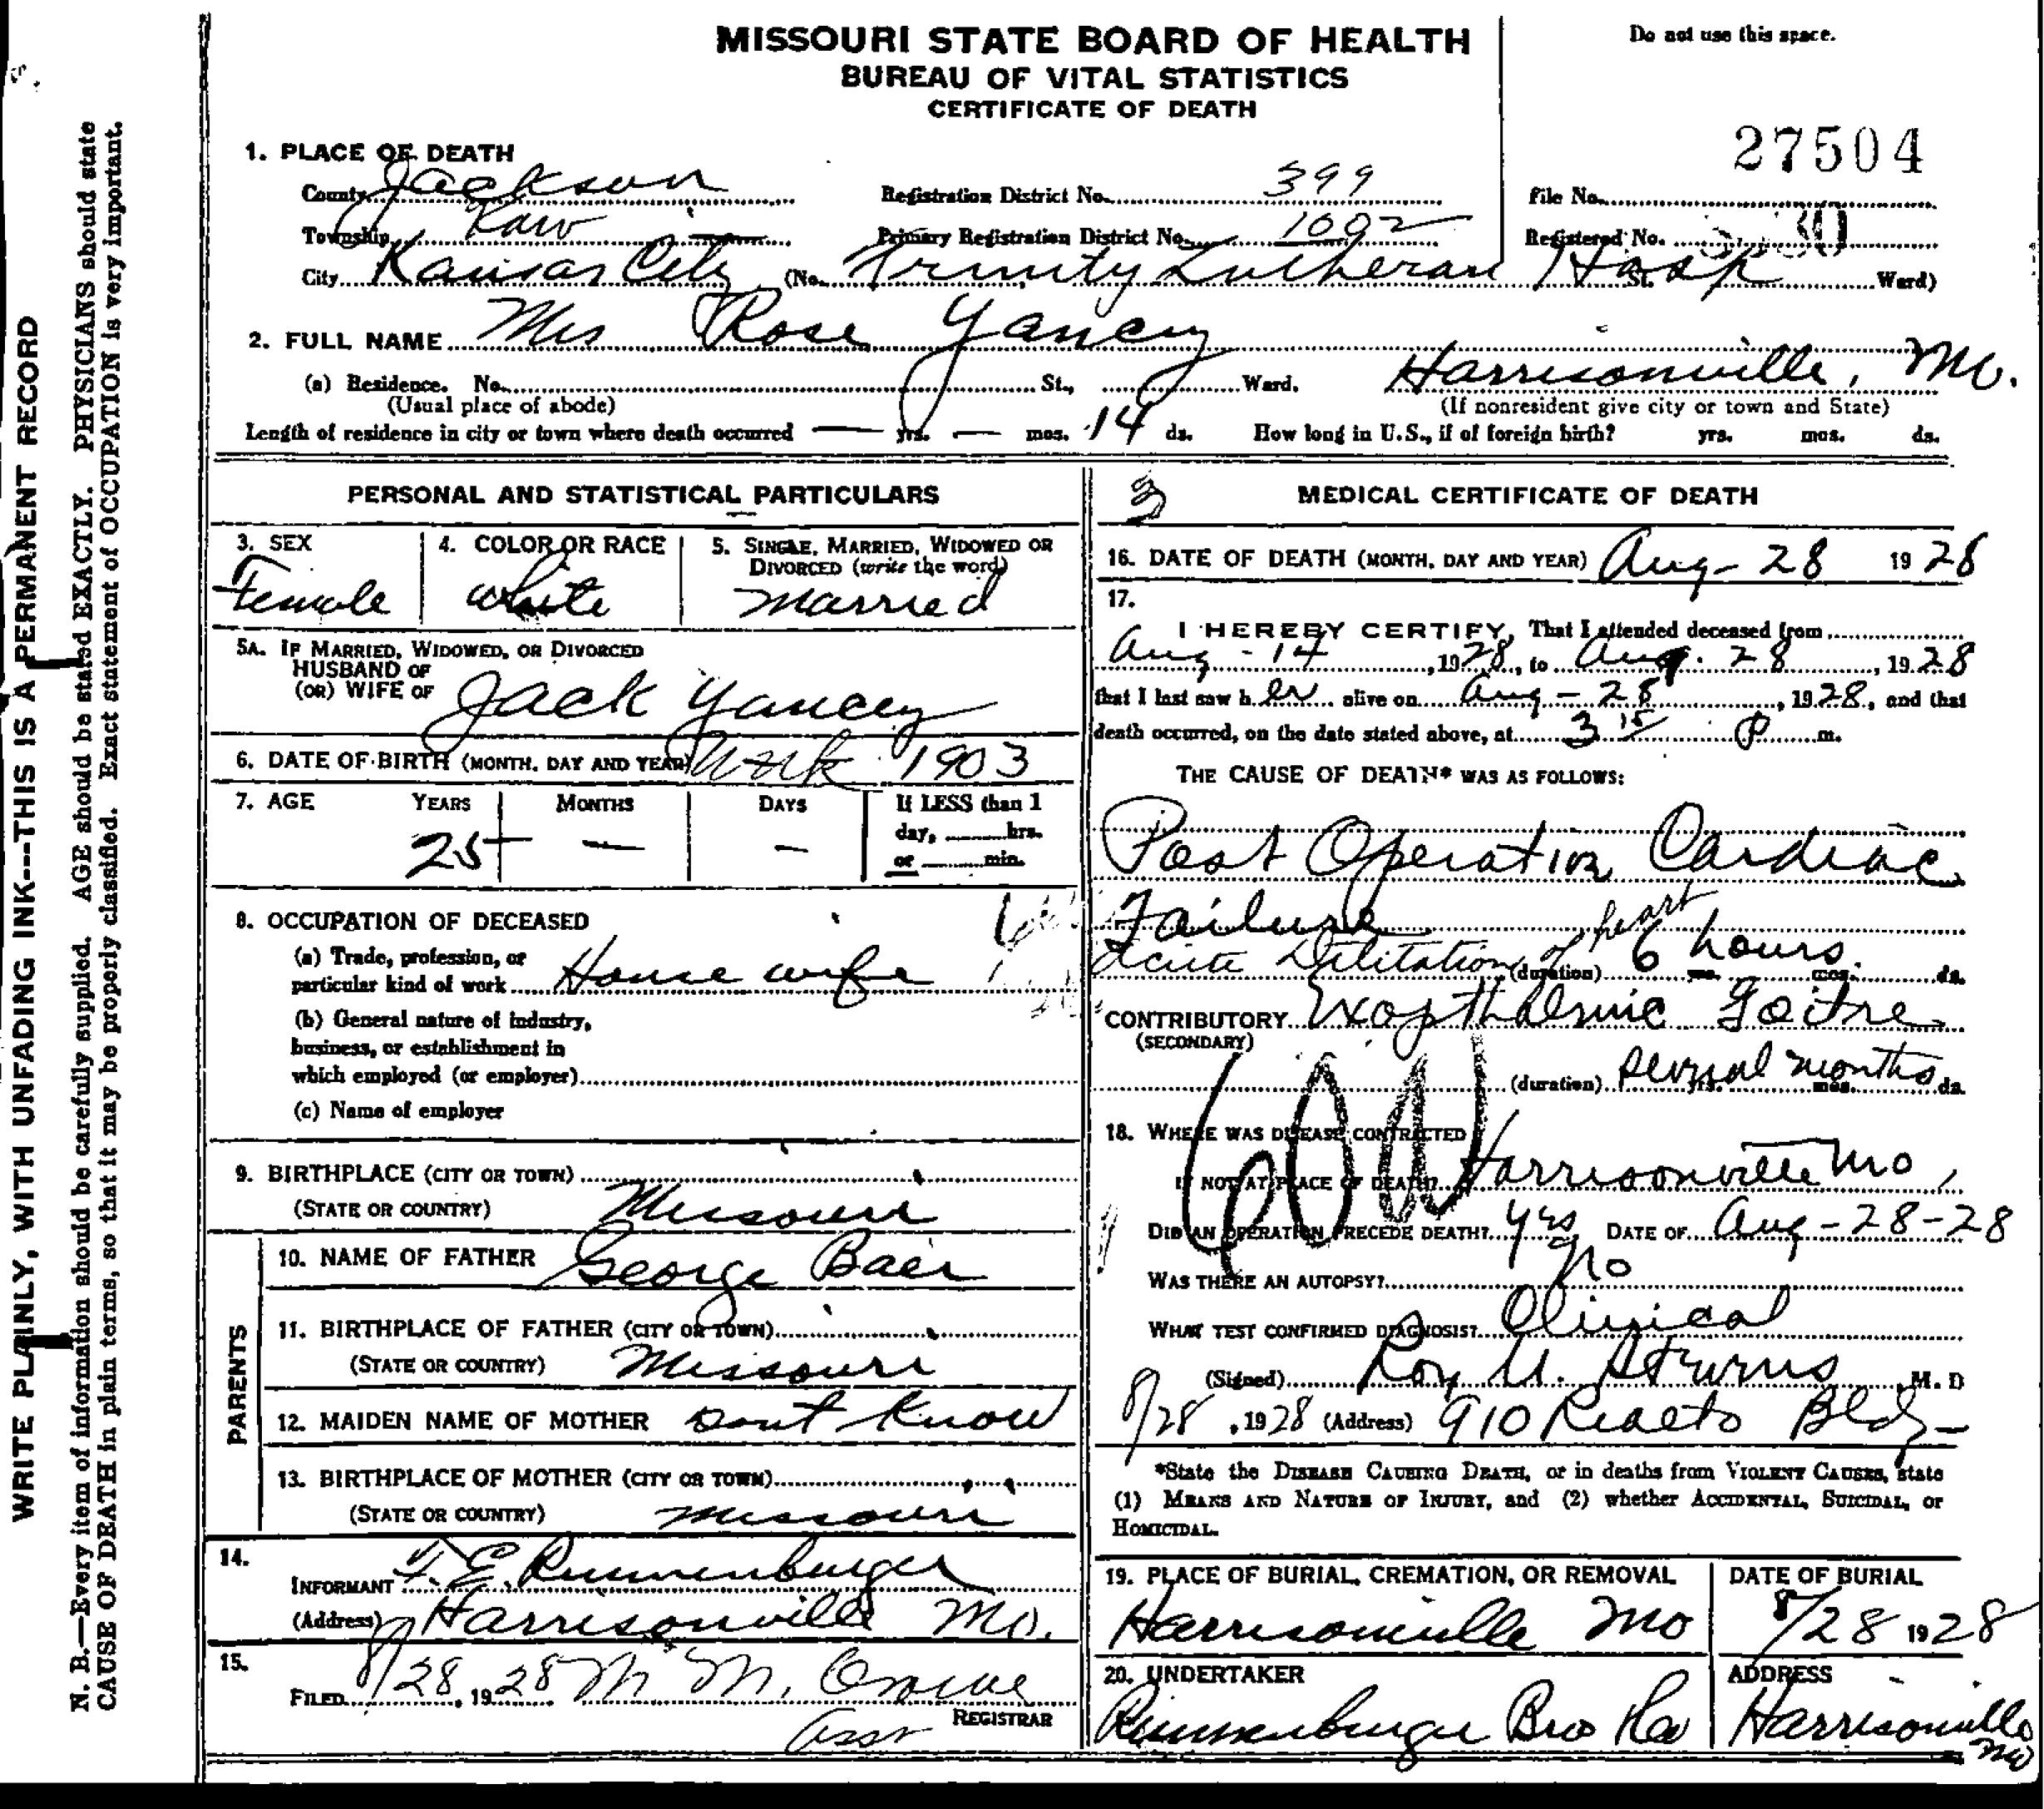 MISSOURI STATE BOARD OF HEALTH
BUREAU OF VITAL STATISTICS
CERTIFICATE OF DEATH
Do not use this space.
27504
1. PLACE OF DEATH
County Jackson Registration District No. 399 File No.
Township Kaw Primary Registration District No. 1002 Registered No.
City Kansas City (No. Trinity Lutheran Hosp St. Ward)
2. FULL NAME Mrs Rose Yancey
(a) Residence. No. St., Ward. Harrisonville, Mo.
(Usual place of abode) (If nonresident give city or town and State)
Length of residence in city or town where death occurred — yrs. — mos. 14 ds. How long in U.S., if of foreign birth? yrs. mos. ds.
PERSONAL AND STATISTICAL PARTICULARS
3. SEX 4. COLOR OR RACE 5. SINGLE, MARRIED, WIDOWED OR
DIVORCED (write the word)
Female white Married
5A. IF MARRIED, WIDOWED, OR DIVORCED
HUSBAND OF
(OR) WIFE OF Jack Yancey
6. DATE OF BIRTH (MONTH, DAY AND YEAR) Unk 1903
7. AGE YEARS MONTHS DAYS If LESS than 1
day, hrs.
or min.
25 — —
8. OCCUPATION OF DECEASED
(a) Trade, profession, or
particular kind of work House wife
(b) General nature of industry,
business, or establishment in
which employed (or employer)
(c) Name of employer
9. BIRTHPLACE (CITY OR TOWN)
(STATE OR COUNTRY) Missouri
PARENTS
10. NAME OF FATHER George Baer
11. BIRTHPLACE OF FATHER (CITY OR TOWN)
(STATE OR COUNTRY) Missouri
12. MAIDEN NAME OF MOTHER Dont Know
13. BIRTHPLACE OF MOTHER (CITY OR TOWN)
(STATE OR COUNTRY) Missouri
14.
INFORMANT Runnenburger
(Address) Harrisonville Mo.
15.
FILED 8/28, 1928 M. M. Crowe
Asst REGISTRAR
MEDICAL CERTIFICATE OF DEATH
16. DATE OF DEATH (MONTH, DAY AND YEAR) Aug - 28 1928
17.
I HEREBY CERTIFY, That I attended deceased from
Aug - 14, 1928, to Aug. 28, 1928
that I last saw her alive on Aug - 28, 1928, and that
death occurred, on the date stated above, at 3 15 P m.
THE CAUSE OF DEATH* WAS AS FOLLOWS:
Post Operation Cardiac
Failure
Acute Dilitation of heart (duration) 6 hours. mos. ds.
CONTRIBUTORY Exopthalmic Goitre
(SECONDARY)
(duration) several months ds.
18. WHERE WAS DISEASE CONTRACTED
IF NOT AT PLACE OF DEATH? Harrisonville Mo,
DID AN OPERATION PRECEDE DEATH? yes DATE OF Aug - 28 - 28
WAS THERE AN AUTOPSY? No
WHAT TEST CONFIRMED DIAGNOSIS? Clinical
(Signed) Roy M. D
8/28, 1928 (Address) 910 Rialto Bldg -
*State the DISEASE CAUSING DEATH, or in deaths from VIOLENT CAUSES, state
(1) MEANS AND NATURE OF INJURY, and (2) whether ACCIDENTAL, SUICIDAL, or
HOMICIDAL.
19. PLACE OF BURIAL, CREMATION, OR REMOVAL DATE OF BURIAL
Harrisonville Mo 8/28 1928
20. UNDERTAKER ADDRESS
Runnenburger Bro Harrisonville
Mo
WRITE PLAINLY, WITH UNFADING INK---THIS IS A PERMANENT RECORD
N. B.—Every item of information should be carefully supplied. AGE should be stated EXACTLY. PHYSICIANS should state
CAUSE OF DEATH in plain terms, so that it may be properly classified. Exact statement of OCCUPATION is very important.